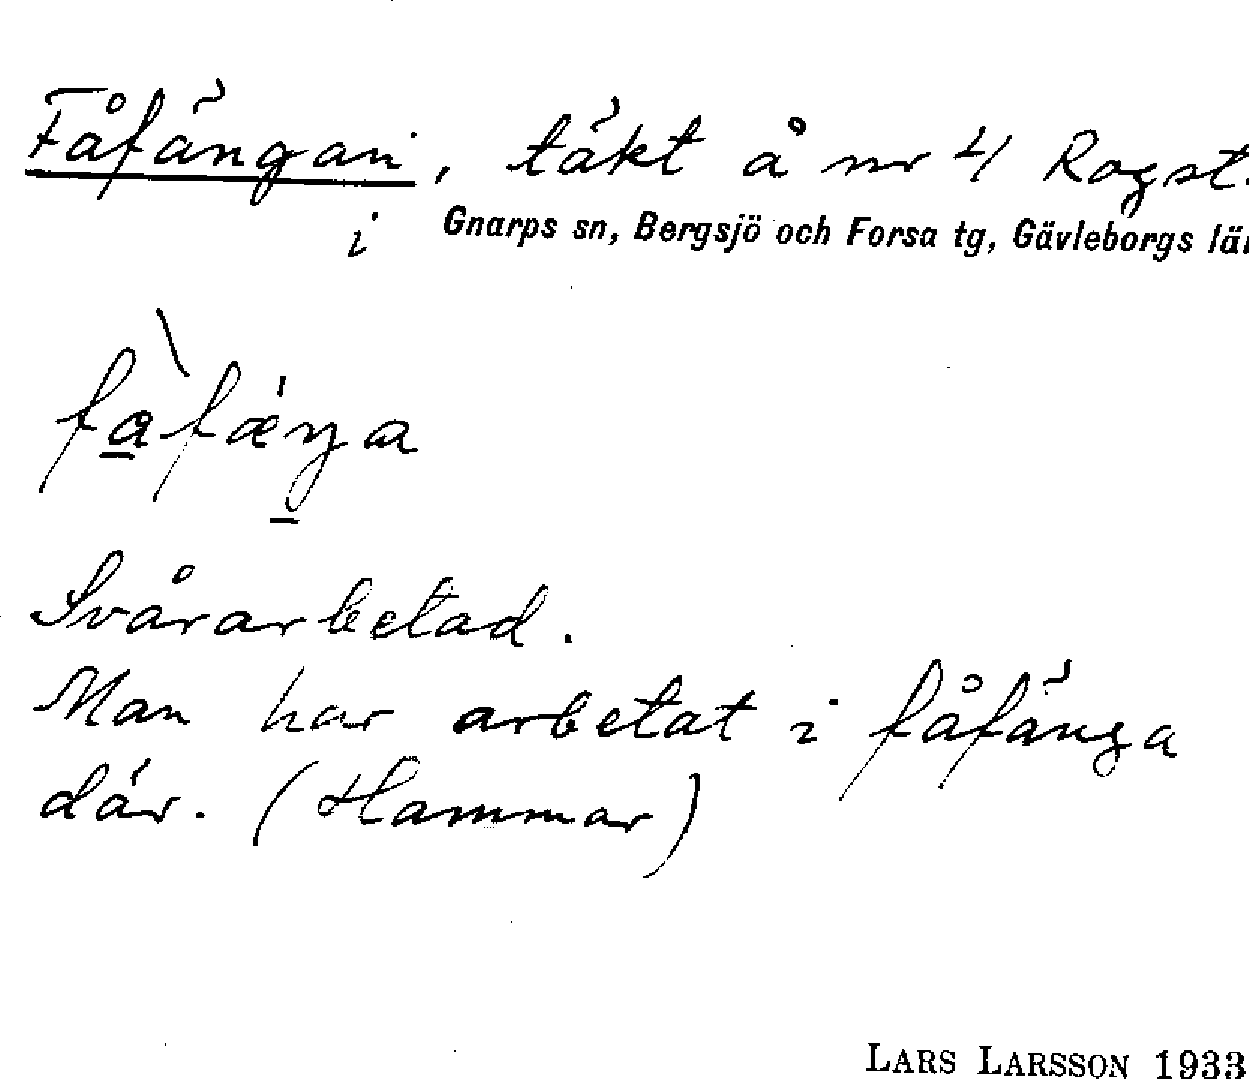 Fåfängan, täkt å nr 4 Rogst.
i Gnarps sn, Bergsjö och Forsa tg, Gävleborgs lä
fàfæŋa
Svårarbetad.
Man har arbetat i fåfänga
där. (Hammar)
LARS LARSSON 1933